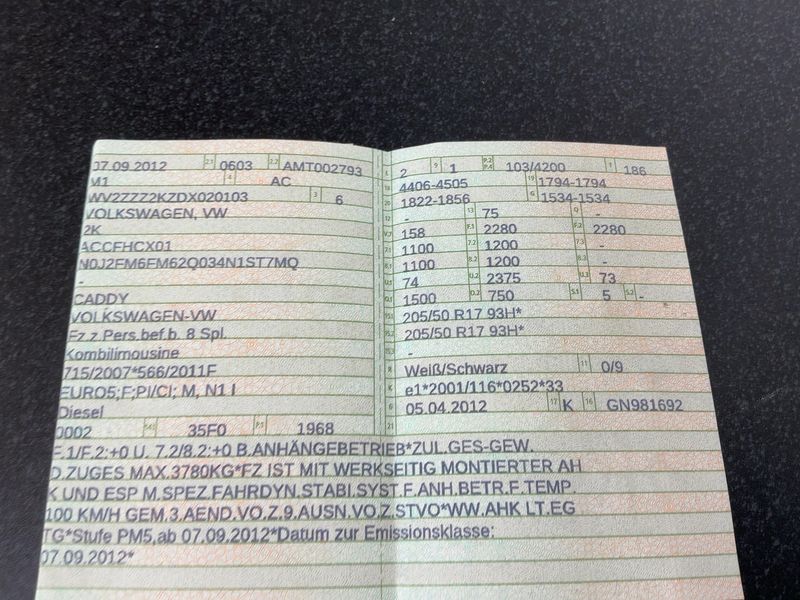 07.09.2012 2.1 0603 2.2 AMT002793
M1 4 AC
WV2ZZZ2KZDX020103 3 6
VOLKSWAGEN, VW
2K
ACCFHCX01
N0J2FM6FM62Q034N1ST7MQ
-
CADDY
VOLKSWAGEN-VW
Fz.z.Pers.bef.b. 8 Spl.
Kombilimousine
715/2007*566/2011F
EURO5;F;PI/CI; M, N1 I
Diesel
0002 35F0 P.1 1968
2 9 1 P.2 P.4 103/4200 T 186
18 4406-4505 19 1794-1794
20 1822-1856 G 1534-1534
12 - 13 75 Q -
V.7 158 F.1 2280 F.2 2280
7.1 1100 7.2 1200 7.3 -
8.1 1100 8.2 1200 8.3 -
U.1 74 U.2 2375 U.3 73
O.1 1500 O.2 750 S.1 5 S.2 -
15.1 205/50 R17 93H*
15.2 205/50 R17 93H*
15.3 -
R Weiß/Schwarz 11 0/9
K e1*2001/116*0252*33
6 05.04.2012 17 K 16 GN981692
21
F.1/F.2:+0 U. 7.2/8.2:+0 B.ANHÄNGEBETRIEB*ZUL.GES-GEW.
D.ZUGES MAX.3780KG*FZ IST MIT WERKSEITIG MONTIERTER AH
K UND ESP M.SPEZ.FAHRDYN.STABI.SYST.F.ANH.BETR.F.TEMP.
100 KM/H GEM.3.AEND.VO.Z.9.AUSN.VO.Z.STVO*WW.AHK LT.EG
TG*Stufe PM5,ab 07.09.2012*Datum zur Emissionsklasse:
07.09.2012*